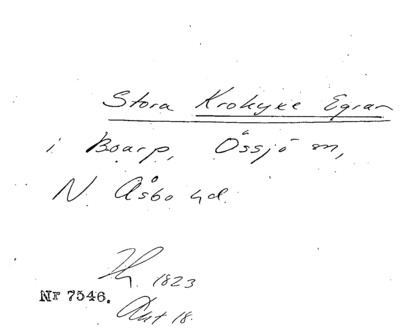 Stora Krokyke Egran
i Boarp, Össjö sn,
N. Åsbo hd.
1823
Nr 7546.
Akt 18.